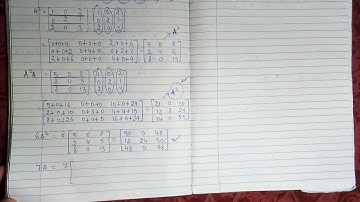 A² = [1 0 2; 0 2 1; 2 0 3] [1 0 2; 0 2 1; 2 0 3]
A²
= [1+0+4 0+0+0 2+0+6; 0+0+2 0+4+0 0+2+3; 2+0+6 0+0+0 4+0+9] = [5 0 8; 2 4 5; 8 0 13]
A²A = [5 0 8; 2 4 5; 8 0 13] [1 0 2; 0 2 1; 2 0 3]
A³
= [5+0+16 0+0+0 10+0+24; 2+0+10 0+8+0 4+4+15; 8+0+26 0+0+0 16+0+39] = [21 0 34; 12 8 23; 34 0 55]
6A² = 6 [5 0 8; 2 4 5; 8 0 13] = [30 0 48; 12 24 30; 48 0 78] ✓
7A = 7 [